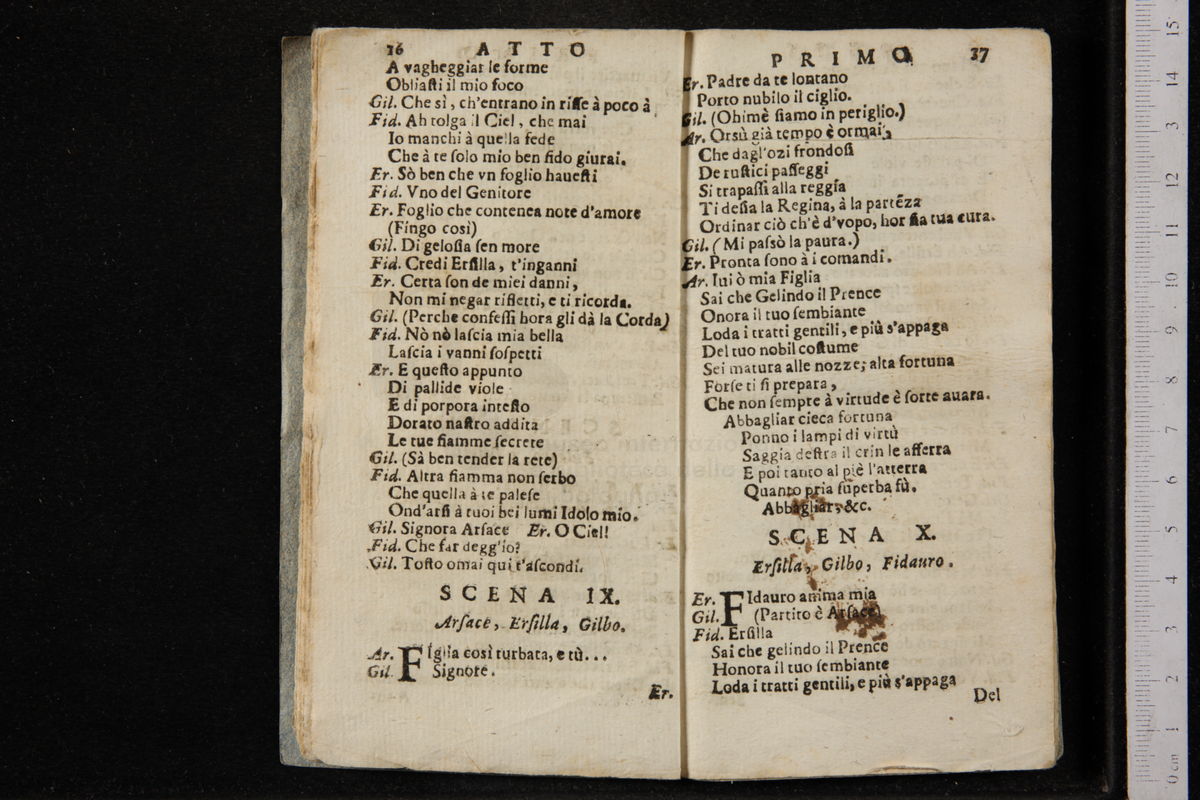 16 ATTO
A vagheggiar le forme
Obliaſti il mio foco
Gil. Che sì, ch'entrano in riſſe à poco à
Fid. Ah tolga il Ciel, che mai
Io manchi à quella fede
Che à te ſolo mio ben fido giurai.
Er. Sò ben che vn foglio haueſti
Fid. Vno del Genitore
Er. Foglio che contenea note d'amore
(Fingo così)
Gil. Di geloſia ſen more
Fid. Credi Erſilla, t'inganni
Er. Certa ſon de miei danni,
Non mi negar rifletti, e ti ricorda.
Gil. (Perche confeſſi hora gli dà la Corda)
Fid. Nò nò laſcia mia bella
Laſcia i vanni ſoſpetti
Er. E queſto appunto
Di pallide viole
E di porpora inteſto
Dorato naſtro addita
Le tue fiamme ſecrete
Gil. (Sà ben tender la rete)
Fid. Altra fiamma non ſerbo
Che quella à te paleſe
Ond'arſi à tuoi bei lumi Idolo mio.
Gil. Signora Arſace Er. O Ciel!
Fid. Che far degg'io?
Gil. Toſto omai qui t'aſcondi.
SCENA IX.
Arſace, Erſilla, Gilbo.
Ar. FIglia così turbata, e tù...
Gil. Signore.
Er.
PRIMO 37
Er. Padre da te lontano
Porto nubilo il ciglio.
Gil. (Ohimè ſiamo in periglio.)
Ar. Orsù già tempo è ormai,
Che dagl'ozi frondoſi
De ruſtici paſſeggi
Si trapaſſi alla reggia
Ti deſia la Regina, à la partēza
Ordinar ciò ch'è d'vopo, hor ſia tua cura.
Gil. (Mi paſsò la paura.)
Er. Pronta ſono à i comandi.
Ar. Iui ò mia Figlia
Sai che Gelindo il Prence
Onora il tuo ſembiante
Loda i tratti gentili, e più s'appaga
Del tuo nobil coſtume
Sei matura alle nozze; alta fortuna
Forſe ti ſi prepara,
Che non ſempre à virtude è ſorte auara.
Abbagliar cieca fortuna
Ponno i lampi di virtù
Saggia deſtra il crin le afferra
E poi tanto al piè l'atterra
Quanto pria ſuperba fù.
Abbagliar, &c.
SCENA X.
Erſilla, Gilbo, Fidauro.
Er. FIdauro anima mia
Gil. (Partito è Arſace)
Fid. Erſilla
Sai che gelindo il Prence
Honora il tuo ſembiante
Loda i tratti gentili, e più s'appaga
Del